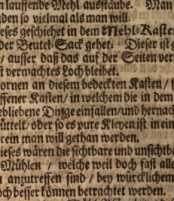 n lauffende Mehl ausstäube. Man
den so vielmal als man will.
ieses geschiehet in dem Mehl-Kasten
der Beutel-Sack gehet. Dieser ist g
/ ausser daß das auf der Seiten ver
st vermachtes Loch bleibet.
ornen an diesem bedeckten Kasten /
ffener Kasten / in welchem die in dem
ebliebene Dinge einfallen / und hernac
üttelt / oder so es pure Kleyen ist heraus
rein man will gethan werden.
ieses wären die sichtbare und unsichtb
Mühlen / welche weil doch fast alle
n anzutreffen sind / bey würcklichem
och besser können betrachtet werden.